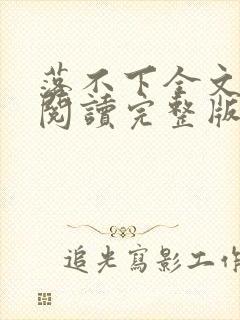 落不下全文
閱讀完整版
追光寫影工作